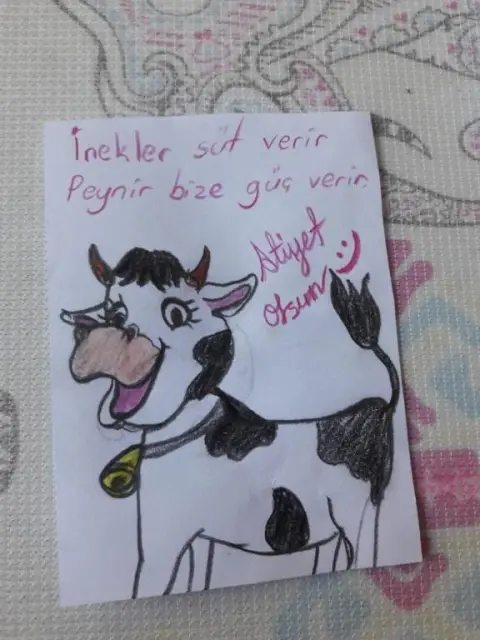 İnekler süt verir
Peynir bize güç verir.
Afiyet
olsun :)